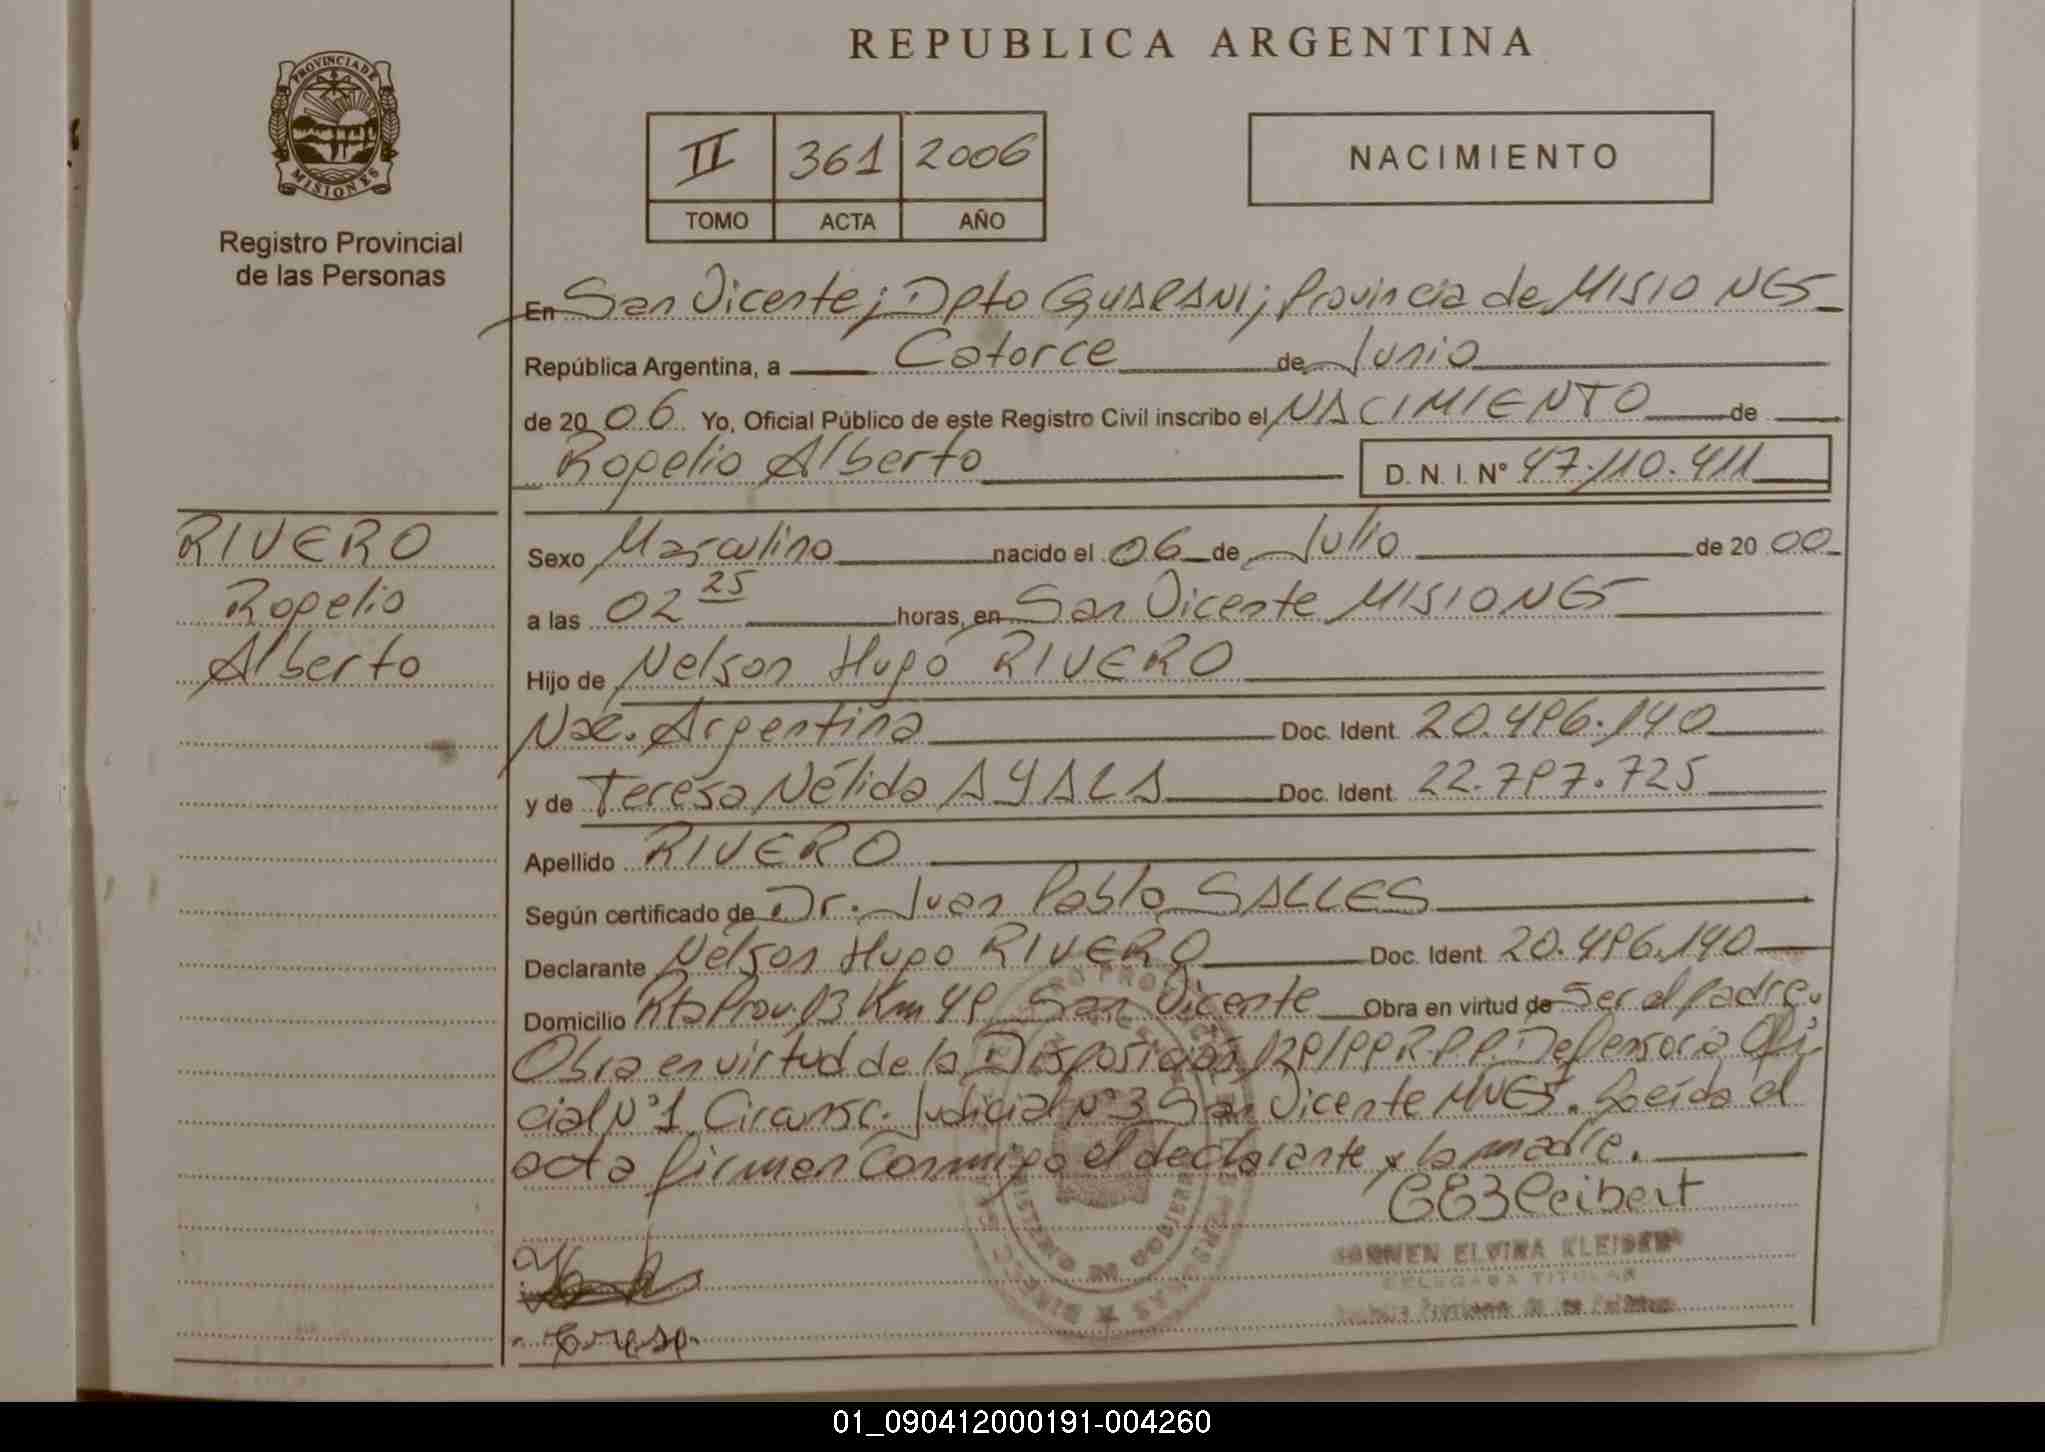 REPUBLICA ARGENTINA
PROVINCIA DE
MISIONES
Registro Provincial
de las Personas
II 361 2006
TOMO ACTA AÑO
NACIMIENTO
En San Vicente; Dpto GUARANI; Provincia de MISIONES
República Argentina, a Catorce de Junio
de 2006 Yo, Oficial Público de este Registro Civil inscribo el NACIMIENTO de
Rogelio Alberto D. N. I. Nº 47.110.411
RIVERO
Rogelio
Alberto
Sexo Masculino nacido el 06 de Julio de 2000
a las 02 25 horas, en San Vicente MISIONES
Hijo de Nelson Hugo RIVERO
Nac. Argentina Doc. Ident. 20.496.140
y de Teresa Nélida AYALA Doc. Ident. 22.797.725
Apellido RIVERO
Según certificado de Dr. Juan Pablo SALLES
Declarante Nelson Hugo RIVERO Doc. Ident. 20.496.140
Domicilio Rta Prov. 13 Km 49 San Vicente Obra en virtud de Ser el padre.
Obra en virtud de la Disposición 129/99 R.P.P. Defensoría Ofi
cial Nº 1 Circunsc. Judicial Nº 3 San Vicente MNES. Leída el
acta firman Conmigo el declarante y la madre.
CARMEN ELVIRA
DELEGADA TITULAR
01_090412000191-004260